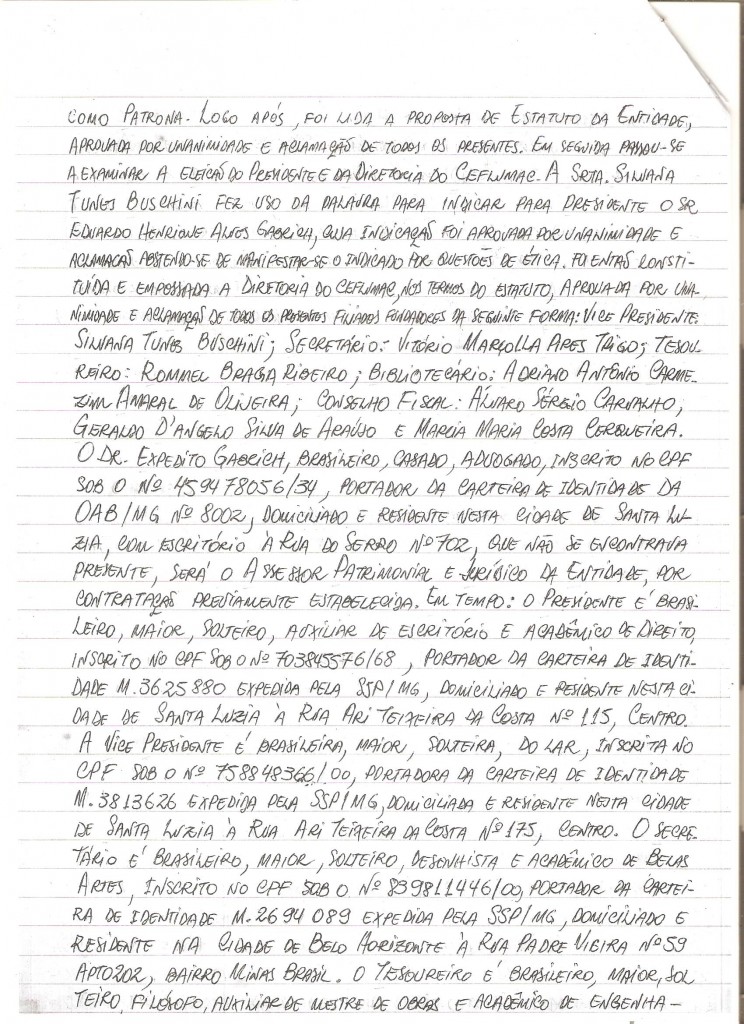 COMO PATRONA. LOGO APÓS, FOI LIDA A PROPOSTA DE ESTATUTO DA ENTIDADE,
APROVADA POR UNANIMIDADE E ACLAMAÇÃO DE TODOS OS PRESENTES. EM SEGUIDA PASSOU-SE
A EXAMINAR A ELEIÇÃO DO PRESIDENTE E DA DIRETORIA DO CEFLUMAC. A SRTA. SILVANA
TUNES BUSCHINI FEZ USO DA PALAVRA PARA INDICAR PARA PRESIDENTE O SR
EDUARDO HENRIQUE ALVES GABRICH, CUJA INDICAÇÃO FOI APROVADA POR UNANIMIDADE E
ACLAMAÇÃO ABSTENDO-SE DE MANIFESTAR-SE O INDICADO POR QUESTÕES DE ÉTICA. FOI ENTÃO CONSTI-
TUÍDA E EMPOSSADA A DIRETORIA DO CEFLUMAC, NOS TERMOS DO ESTATUTO, APROVADA POR UNA-
NIMIDADE E ACLAMAÇÃO DE TODOS OS PRESENTES FILIADOS FUNDADORES DA SEGUINTE FORMA: VICE PRESIDENTE:
SILVANA TUNES BUSCHINI; SECRETÁRIO: VITÓRIO MARÇOLLA APES TRIGO; TESOU-
REIRO: ROMMEL BRAGA RIBEIRO; BIBLIOTECÁRIO: ADRIANO ANTÔNIO CARME-
ZIM AMARAL DE OLIVEIRA; CONSELHO FISCAL: ÁLVARO SÉRGIO CARVALHO,
GERALDO D'ANGELO SILVA DE ARAÚJO E MARCIA MARIA COSTA CERQUEIRA.
O DR. EXPEDITO GABRICH, BRASILEIRO, CASADO, ADVOGADO, INSCRITO NO CPF
SOB O Nº 459478056/34, PORTADOR DA CARTEIRA DE IDENTIDADE DA
OAB/MG Nº 8002, DOMICILIADO E RESIDENTE NESTA CIDADE DE SANTA LU-
ZIA, COM ESCRITÓRIO À RUA DO SERRO Nº 702, QUE NÃO SE ENCONTRAVA
PRESENTE, SERÁ O ASSESSOR PATRIMONIAL E JURÍDICO DA ENTIDADE, POR
CONTRATAÇÃO PREVIAMENTE ESTABELECIDA. EM TEMPO: O PRESIDENTE É BRASI-
LEIRO, MAIOR, SOLTEIRO, AUXILIAR DE ESCRITÓRIO E ACADÊMICO DE DIREITO,
INSCRITO NO CPF SOB O Nº 703845576/68, PORTADOR DA CARTEIRA DE IDENTI-
DADE M.3625880 EXPEDIDA PELA SSP/MG, DOMICILIADO E RESIDENTE NESTA CI-
DADE DE SANTA LUZIA À RUA ARI TEIXEIRA DA COSTA Nº 115, CENTRO.
A VICE PRESIDENTE É BRASILEIRA, MAIOR, SOLTEIRA, DO LAR, INSCRITA NO
CPF SOB O Nº 758848366/00, PORTADORA DA CARTEIRA DE IDENTIDADE
M.3813626 EXPEDIDA PELA SSP/MG, DOMICILIADA E RESIDENTE NESTA CIDADE
DE SANTA LUZIA À RUA ARI TEIXEIRA DA COSTA Nº 175, CENTRO. O SECRE-
TÁRIO É BRASILEIRO, MAIOR, SOLTEIRO, DESENHISTA E ACADÊMICO DE BELAS
ARTES, INSCRITO NO CPF SOB O Nº 839811446/00, PORTADOR DA CARTEI-
RA DE IDENTIDADE M.2694089 EXPEDIDA PELA SSP/MG, DOMICILIADO E
RESIDENTE NA CIDADE DE BELO HORIZONTE À RUA PADRE VIEIRA Nº 59
APTO 202, BAIRRO MINAS BRASIL. O TESOUREIRO É BRASILEIRO, MAIOR, SOL
TEIRO, FILÓSOFO, AUXILIAR DE MESTRE DE OBRAS E ACADÊMICO DE ENGENHA-